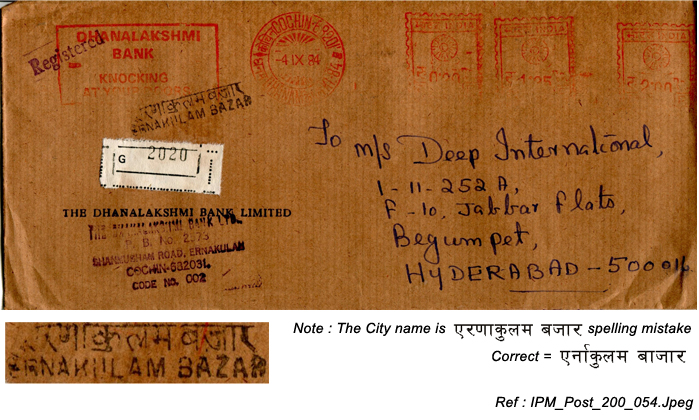 Registered
DHANALAKSHMI
BANK
KNOCKING
AT YOUR DOORS
COCHIN
-4 IX 84
भारत INDIA
भारत INDIA
भारत INDIA
एरणाकुलम बजार
ERNAKULAM BAZAR
G 2020
To M/s Deep International,
1-11-252A,
F-10, Jabbar Flats,
Begumpet,
HYDERABAD-500016
THE DHANALAKSHMI BANK LIMITED
THE DHANALAKSHMI BANK LTD.
P. B. No. 2573
SHANMUGHAM ROAD, ERNAKULAM
COCHIN-682031.
CODE NO. 002
एरणाकुलम बजार
ERNAKULAM BAZAR
Note : The City name is एरणाकुलम बजार spelling mistake
Correct = एर्नाकुलम बाजार
Ref : IPM_Post_200_054.Jpeg